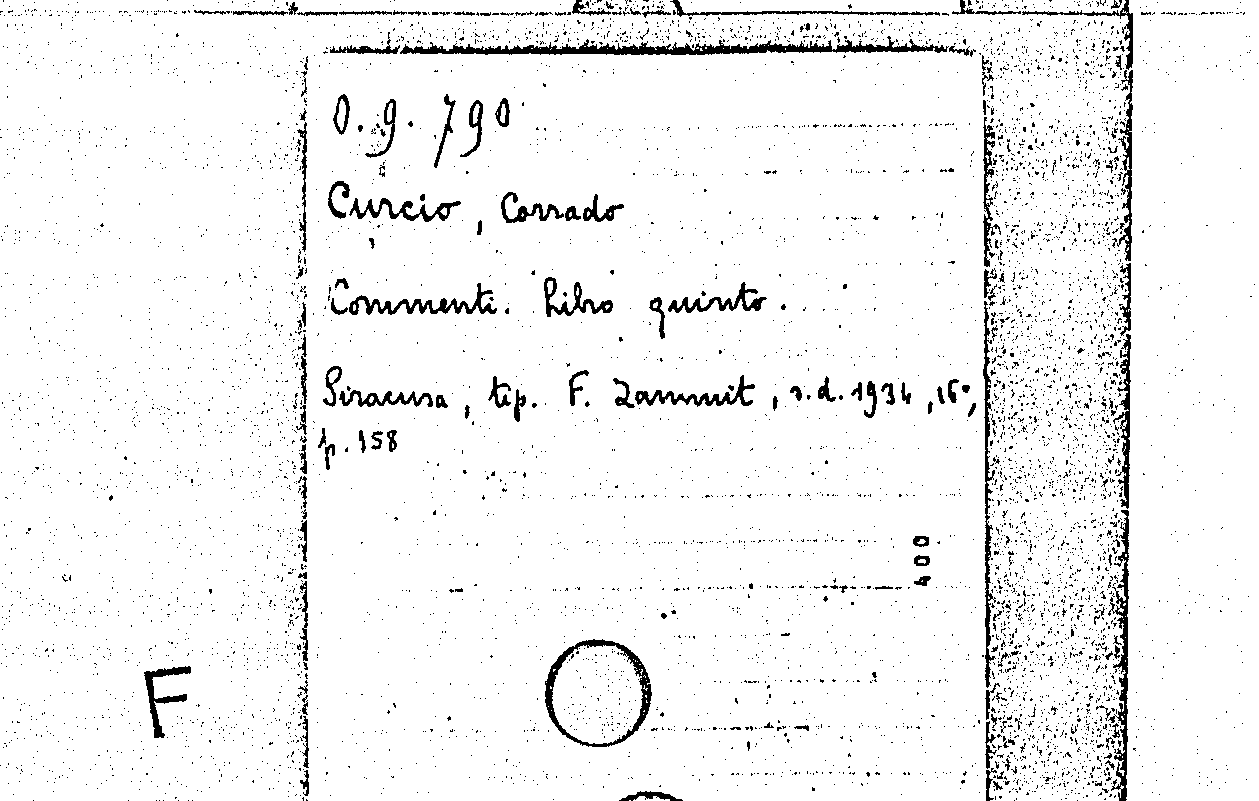 0.9.790
Curcio, Corrado
Commenti. Libro quinto.
Siracusa, tip. F. Zammit, s.d. 1934, 16°,
p. 158
400
F